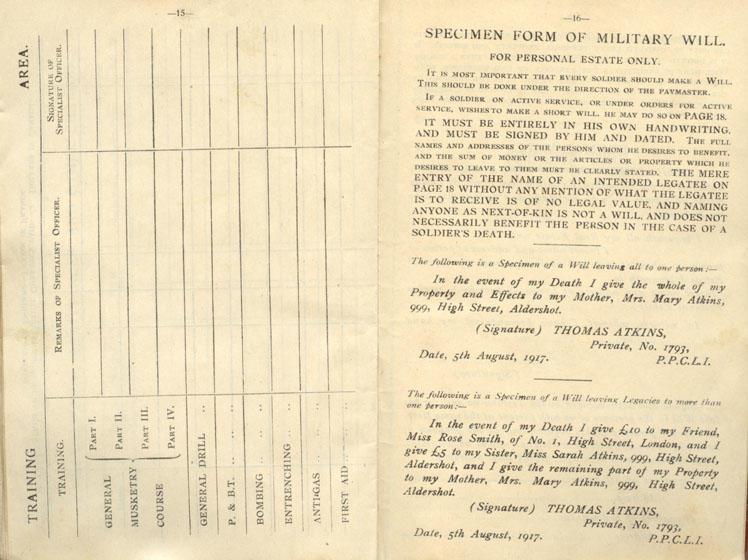 —15—
TRAINING
AREA.
TRAINING.
REMARKS OF SPECIALIST OFFICER.
SIGNATURE OF
SPECIALIST OFFICER.
GENERAL
MUSKETRY
COURSE
PART I.
PART II.
PART III.
PART IV.
GENERAL DRILL ..
P. & B.T. .. ..
BOMBING .. ..
ENTRENCHING ..
ANTI-GAS .. ..
FIRST AID .. ..
—16—
SPECIMEN FORM OF MILITARY WILL.
FOR PERSONAL ESTATE ONLY.
IT IS MOST IMPORTANT THAT EVERY SOLDIER SHOULD MAKE A WILL.
THIS SHOULD BE DONE UNDER THE DIRECTION OF THE PAYMASTER.
IF A SOLDIER ON ACTIVE SERVICE, OR UNDER ORDERS FOR ACTIVE
SERVICE, WISHES TO MAKE A SHORT WILL, HE MAY DO SO ON PAGE 18.
IT MUST BE ENTIRELY IN HIS OWN HANDWRITING,
AND MUST BE SIGNED BY HIM AND DATED. THE FULL
NAMES AND ADDRESSES OF THE PERSONS WHOM HE DESIRES TO BENEFIT,
AND THE SUM OF MONEY OR THE ARTICLES OR PROPERTY WHICH HE
DESIRES TO LEAVE TO THEM MUST BE CLEARLY STATED. THE MERE
ENTRY OF THE NAME OF AN INTENDED LEGATEE ON
PAGE 18 WITHOUT ANY MENTION OF WHAT THE LEGATEE
IS TO RECEIVE IS OF NO LEGAL VALUE, AND NAMING
ANYONE AS NEXT-OF-KIN IS NOT A WILL, AND DOES NOT
NECESSARILY BENEFIT THE PERSON IN THE CASE OF A
SOLDIER'S DEATH.
The following is a Specimen of a Will leaving all to one person:—
In the event of my Death I give the whole of my
Property and Effects to my Mother, Mrs. Mary Atkins,
999, High Street, Aldershot.
(Signature) THOMAS ATKINS,
Private, No. 1793,
P.P.C.L.I.
Date, 5th August, 1917.
The following is a Specimen of a Will leaving Legacies to more than
one person:—
In the event of my Death I give £10 to my Friend,
Miss Rose Smith, of No. 1, High Street, London, and I
give £5 to my Sister, Miss Sarah Atkins, 999, High Street,
Aldershot, and I give the remaining part of my Property
to my Mother, Mrs. Mary Atkins, 999, High Street,
Aldershot.
(Signature) THOMAS ATKINS,
Private, No. 1793,
P.P.C.L.I.
Date, 5th August, 1917.